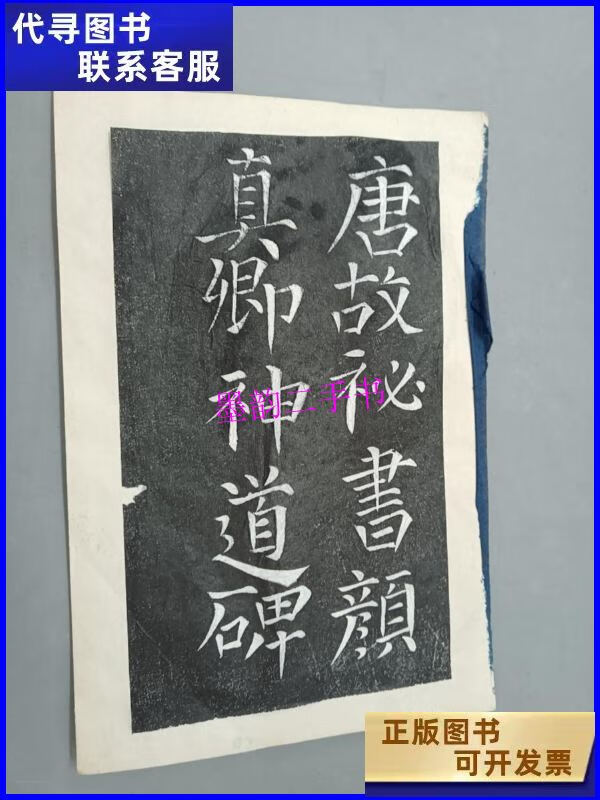 代寻图书
联系客服
唐故祕書顔
真卿神道碑
墨韵二手书
正版图书
可开发票